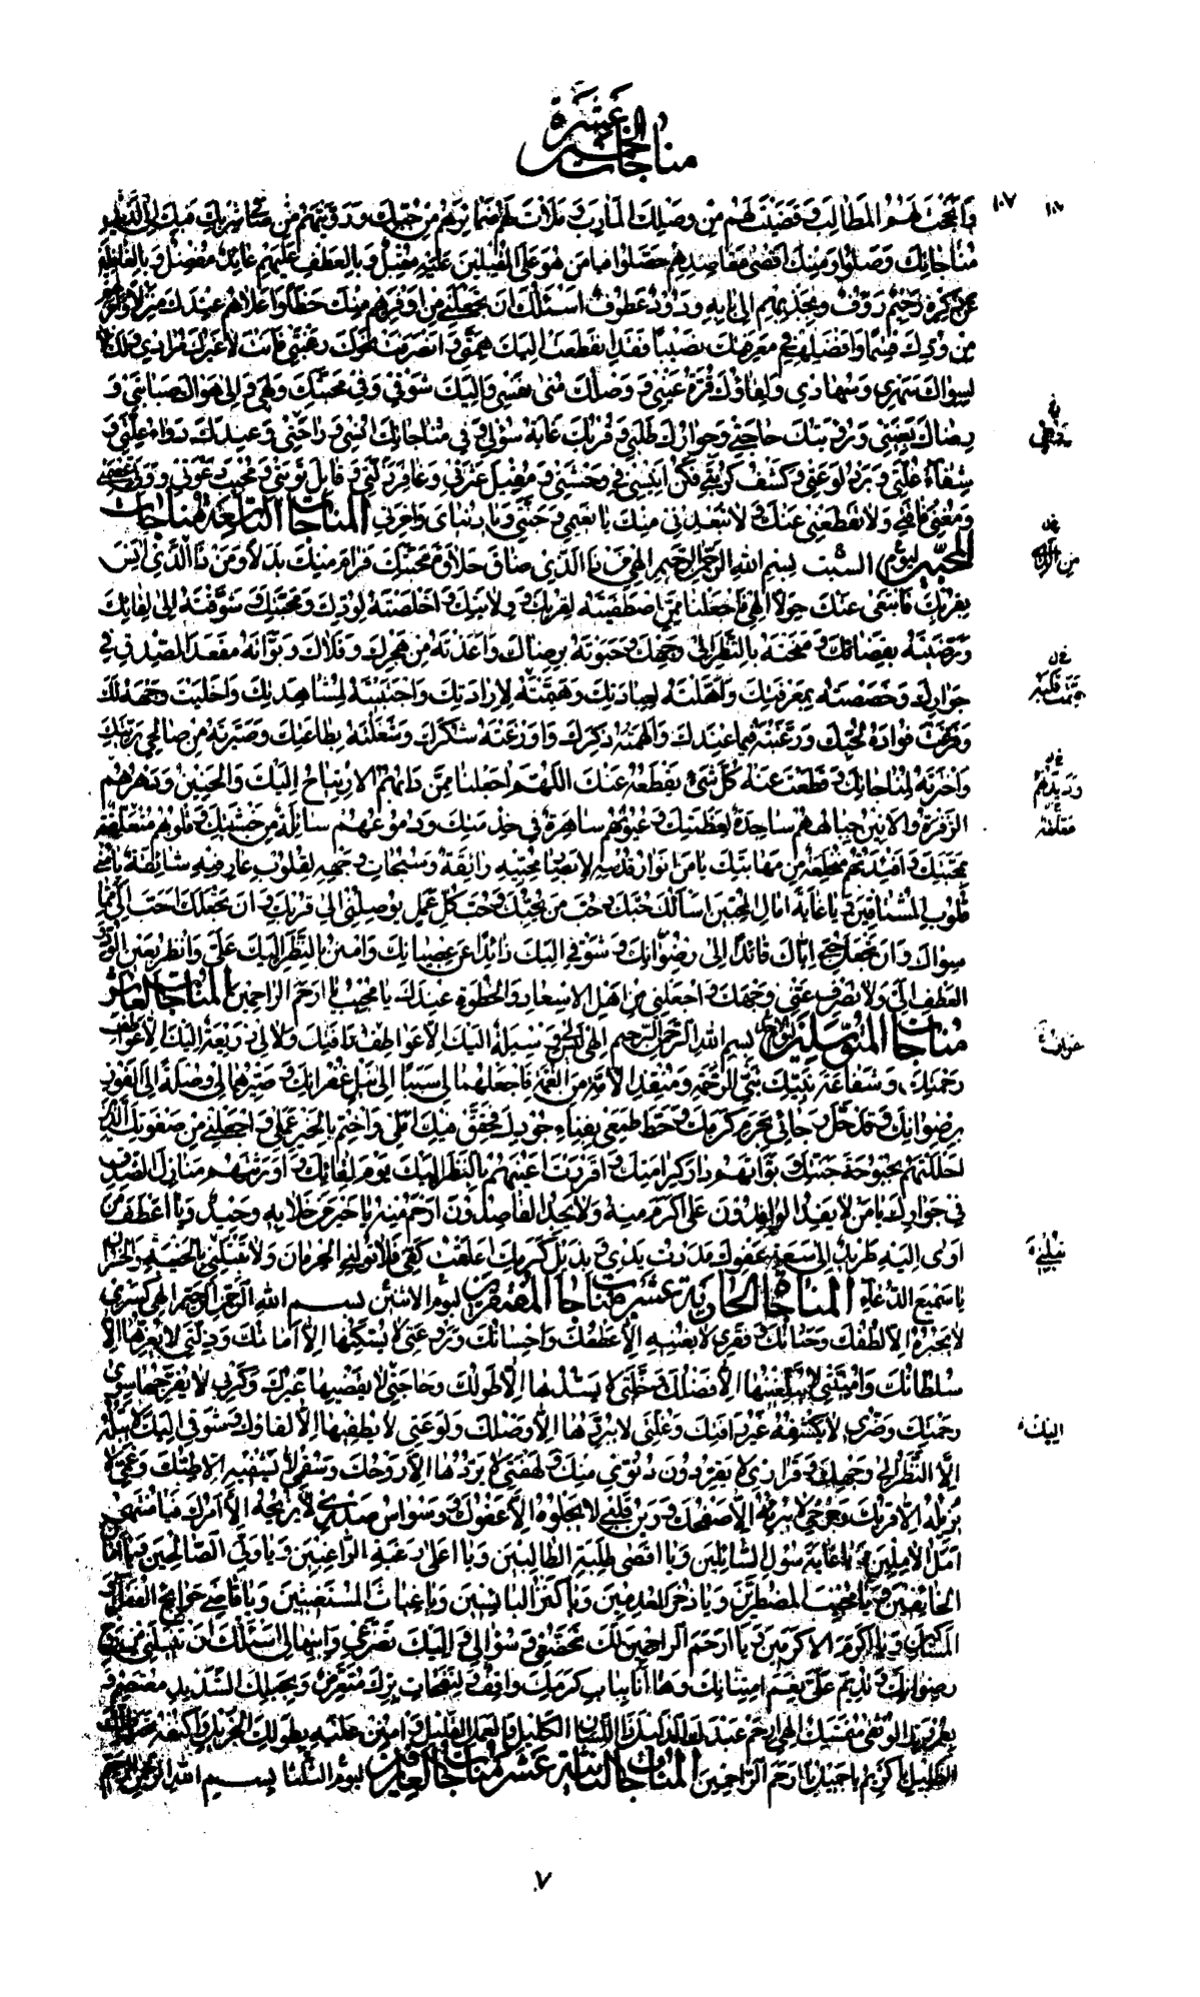 مناجات الخمس عشرة
١٠٧
وَاَنْجَحْتَ لَهُمُ المَطالِبَ وَقَضَيْتَ لَهُمْ مِنْ وَصْلِكَ المَارِبَ وَمَلَأْتَ لَهُمْ ضَمائِرَهُمْ مِنْ حُبِّكَ وَرَوَّيْتَهُمْ مِنْ صافى شِرْبِكَ فَبِكَ اِلى لَذيذِ
مُناجاتِكَ وَصَلُوا وَمِنْكَ اَقْصى مَقاصِدِهِمْ حَصَّلُوا فيا مَنْ هُوَ عَلَى المُقْبِلينَ عَلَيْهِ مُقْبِلٌ وَبِالعَطْفِ عَلَيْهِمْ عائِدٌ مُفْضِلٌ وَبِالغافِلينَ
عَنْ ذِكْرِهِ رَحيمٌ رَؤُفٌ وَبِجَذْبِهِمْ اِلى بابِهِ وَدُودٌ عَطُوفٌ اَسْئَلُكَ اَنْ تَجْعَلَنى مِنْ اَوْفَرِهِمْ مِنْكَ حَظّاً وَاَعْلاهُمْ عِنْدَكَ مَنْزِلاً وَاَجْزَلِهِمْ
مِنْ وُدِّكَ قِسْماً وَاَفْضَلِهِمْ فى مَعْرِفَتِكَ نَصيباً فَقَدِ انْقَطَعَتْ اِلَيْكَ هِمَّتى وَانْصَرَفَتْ نَحْوَكَ رَغْبَتى فَاَنْتَ لا غَيْرُكَ مُرادى وَلَكَ لا
لِسِواكَ سَهَرى وَسُهادى وَلِقاؤُكَ قُرَّةُ عَيْنى وَوَصْلُكَ مُنى نَفْسى وَاِلَيْكَ شَوْقى وَفى مَحَبَّتِكَ وَلَهى وَاِلى هَواكَ صَبابَتى وَ
رِضاكَ بُغْيَتى وَرُؤْيَتُكَ حاجَتى وَجِوارُكَ طَلَبى وَقُرْبُكَ غايَةُ سُؤْلى وَفى مُناجاتِكَ اُنْسى وَراحَتى وَعِنْدَكَ دَواءُ عِلَّتى وَ
شِفاءُ غُلَّتى وَبَرْدُ لَوْعَتى وَكَشْفُ كُرْبَتى فَكُنْ اَنيسى فى وَحْشَتى وَمُقيلَ عَثْرَتى وَغافِرَ زَلَّتى وَقابِلَ تَوْبَتى وَمُجيبَ دَعْوَتى وَوَلِىَّ عِصْمَتى
وَمُغْنِىَ فاقَتى وَلا تَقْطَعْنى عَنْكَ وَلا تُبْعِدْنى مِنْكَ يا نَعيمى وَجَنَّتى وَيا دُنْياىَ وَاخِرَتى المناجات التاسعة مناجات
المحبين ليوم السبت بِسْمِ اللهِ الرَّحْمنِ الرَّحيمِ اِلهى مَنْ ذَا الَّذى ذاقَ حَلاوَةَ مَحَبَّتِكَ فَرامَ مِنْكَ بَدَلاً وَمَنْ ذَا الَّذى اَنِسَ
بِقُرْبِكَ فَابْتَغى عَنْكَ حِوَلاً اِلهى فَاجْعَلْنا مِمَّنِ اصْطَفَيْتَهُ لِقُرْبِكَ وَوِلايَتِكَ وَاَخْلَصْتَهُ لِوُدِّكَ وَمَحَبَّتِكَ وَشَوَّقْتَهُ اِلى لِقائِكَ
وَرَضَّيْتَهُ بِقَضائِكَ وَمَنَحْتَهُ بِالنَّظَرِ اِلى وَجْهِكَ وَحَبَوْتَهُ بِرِضاكَ وَاَعَذْتَهُ مِنْ هَجْرِكَ وَقَلاكَ وَبَوَّأْتَهُ مَقْعَدَ الصِّدْقِ فى
جِوارِكَ وَخَصَصْتَهُ بِمَعْرِفَتِكَ وَاَهَّلْتَهُ لِعِبادَتِكَ وَهَيَّمْتَهُ لِاِرادَتِكَ وَاجْتَبَيْتَهُ لِمُشاهَدَتِكَ وَاَخْلَيْتَ وَجْهَهُ لَكَ
وَفَرَّغْتَ فُؤادَهُ لِحُبِّكَ وَرَغَّبْتَهُ فيما عِنْدَكَ وَاَلْهَمْتَهُ ذِكْرَكَ وَاَوْزَعْتَهُ شُكْرَكَ وَشَغَلْتَهُ بِطاعَتِكَ وَصَيَّرْتَهُ مِنْ صالِحى بَرِيَّتِكَ
وَاخْتَرْتَهُ لِمُناجاتِكَ وَقَطَعْتَ عَنْهُ كُلَّ شَىْءٍ يَقْطَعُهُ عَنْكَ اَللّهُمَّ اجْعَلْنا مِمَّنْ دَأْبُهُمُ الاِرْتِياحُ اِلَيْكَ وَالحَنينُ وَدَهْرُهُمُ
الزَّفْرَةُ وَالاَنينُ جِباهُهُمْ ساجِدَةٌ لِعَظَمَتِكَ وَعُيُونُهُمْ ساهِرَةٌ فى خِدْمَتِكَ وَدُمُوعُهُمْ سائِلَةٌ مِنْ خَشْيَتِكَ وَقُلُوبُهُمْ مُتَعَلِّقَةٌ
بِمَحَبَّتِكَ وَاَفْئِدَتُهُمْ مُنْخَلِعَةٌ مِنْ مَهابَتِكَ يا مَنْ اَنْوارُ قُدْسِهِ لِاَبْصارِ مُحِبّيهِ رائِقَةٌ وَسُبُحاتُ وَجْهِهِ لِقُلُوبِ عارِفيهِ شائِقَةٌ يا مُنى
قُلُوبِ المُشْتاقينَ وَيا غايَةَ امالِ المُحِبّينَ اَسْأَلُكَ حُبَّكَ وَحُبَّ مَنْ يُحِبُّكَ وَحُبَّ كُلِّ عَمَلٍ يُوصِلُنى اِلى قُرْبِكَ وَاَنْ تَجْعَلَكَ اَحَبَّ اِلَىَّ مِمّا
سِواكَ وَاَنْ تَجْعَلَ حُبّى اِيّاكَ قائِداً اِلى رِضْوانِكَ وَشَوْقى اِلَيْكَ ذائِداً عَنْ عِصْيانِكَ وَامْنُنْ بِالنَّظَرِ اِلَيْكَ عَلَىَّ وَانْظُرْ بِعَيْنِ الوُدِّ وَ
العَطْفِ اِلَىَّ وَلا تَصْرِفْ عَنّى وَجْهَكَ وَاجْعَلْنى مِنْ اَهْلِ الاِسْعادِ وَالحُظْوَةِ عِنْدَكَ يا مُجيبُ يا اَرْحَمَ الرّاحِمينَ المناجات العاشرة
مناجات المتوسلين بِسْمِ اللهِ الرَّحْمنِ الرَّحيمِ اِلهى لَيْسَ لى وَسيلَةٌ اِلَيْكَ اِلاّ عَواطِفُ رَأْفَتِكَ وَلا لى ذَريعَةٌ اِلَيْكَ اِلاّ عَواطِفُ
رَحْمَتِكَ وَشَفاعَةُ نَبِيِّكَ نَبِىِّ الرَّحْمَةِ وَمُنْقِذِ الاُمَّةِ مِنَ الغُمَّةِ فَاجْعَلْهُما لى سَبَباً اِلى نَيْلِ غُفْرانِكَ وَصَيِّرْهُما لى وُصْلَةً اِلَى الفَوْزِ
بِرِضْوانِكَ وَقَدْ حَلَّ رَجائى بِحَرَمِ كَرَمِكَ وَحَطَّ طَمَعى بِفِناءِ جُودِكَ فَحَقِّقْ فيكَ اَمَلى وَاخْتِمْ بِالخَيْرِ عَمَلى وَاجْعَلْنى مِنْ صَفْوَتِكَ الَّذينَ
اَحْلَلْتَهُمْ بُحْبُوحَةَ جَنَّتِكَ وَبَوَّأْتَهُمْ دارَ كَرامَتِكَ وَاَقْرَرْتَ اَعْيُنَهُمْ بِالنَّظَرِ اِلَيْكَ يَوْمَ لِقائِكَ وَاَوْرَثْتَهُمْ مَنازِلَ الصِّدْقِ
فى جِوارِكَ يا مَنْ لا يَفِدُ الوافِدُونَ عَلى اَكْرَمَ مِنْهُ وَلا يَجِدُ القاصِدُونَ اَرْحَمَ مِنْهُ يا خَيْرَ مَنْ خَلا بِهِ وَحيدٌ وَيا اَعْطَفَ مَنْ
اَوى اِلَيْهِ طَريدٌ اِلى سَعَةِ عَفْوِكَ مَدَدْتُ يَدى وَبِذَيْلِ كَرَمِكَ اَعْلَقْتُ كَفّى فَلا تُولِنِى الحِرْمانَ وَلا تَبْتَلِنى بِالخَيْبَةِ وَالخُسْرانِ
يا سَميعَ الدُّعاءِ المناجات الحادية عشرة مناجات المفتقرين ليوم الاثنين بِسْمِ اللهِ الرَّحْمنِ الرَّحيمِ اِلهى كَسْرى
لا يَجْبُرُهُ اِلاّ لُطْفُكَ وَحَنانُكَ وَفَقْرى لا يُغْنيهِ اِلاّ عَطْفُكَ وَاِحْسانُكَ وَرَوْعَتى لا يُسَكِّنُها اِلاّ اَمانُكَ وَذِلَّتى لا يُعِزُّها اِلاّ
سُلْطانُكَ وَاُمْنِيَّتى لا يُبَلِّغُنيها اِلاّ فَضْلُكَ وَخَلَّتى لا يَسُدُّها اِلاّ طَوْلُكَ وَحاجَتى لا يَقْضيها غَيْرُكَ وَكَرْبى لا يُفَرِّجُها سِوى
رَحْمَتِكَ وَضُرّى لا يَكْشِفُهُ غَيْرُ رَأْفَتِكَ وَغُلَّتى لا يُبَرِّدُها اِلاّ وَصْلُكَ وَلَوْعَتى لا يُطْفيها اِلاّ لِقاؤُكَ وَشَوْقى اِلَيْكَ لا يَبُلُّهُ
اِلاَّ النَّظَرُ اِلى وَجْهِكَ وَقَرارى لا يَقِرُّ دُونَ دُنُوّى مِنْكَ وَلَهْفَتى لا يَرُدُّها اِلاّ رَوْحُكَ وَسُقْمى لا يَشْفيهِ اِلاّ طِبُّكَ وَغَمّى لا
يُزيلُهُ اِلاّ قُرْبُكَ وَجُرْحى لا يُبْرِئُهُ اِلاّ صَفْحُكَ وَرَيْنُ قَلْبى لا يَجْلُوهُ اِلاّ عَفْوُكَ وَوَسْواسُ صَدْرى لا يُزيحُهُ اِلاّ اَمْرُكَ فَيا مُنْتَهى
اَمَلِ الامِلينَ وَيا غايَةَ سُؤْلِ السّائِلينَ وَيا اَقْصى طَلِبَةِ الطّالِبينَ وَيا اَعْلى رَغْبَةِ الرّاغِبينَ وَيا وَلِىَّ الصّالِحينَ وَيا اَمانَ
الخائِفينَ وَيا مُجيبَ المُضْطَرّينَ وَيا ذُخْرَ المُعْدِمينَ وَيا كَنْزَ البائِسينَ وَيا غِياثَ المُسْتَغيثينَ وَيا قاضِىَ حَوائِجِ الفُقَراءِ وَ
المَساكينِ وَيا اَكْرَمَ الاَكْرَمينَ وَيا اَرْحَمَ الرّاحِمينَ لَكَ تَخَضُّعى وَسُؤالى وَاِلَيْكَ تَضَرُّعى وَابْتِهالى اَسْئَلُكَ اَنْ تُنيلَنى مِنْ رَوْحِ
رِضْوانِكَ وَتُديمَ عَلَىَّ نِعَمَ امْتِنانِكَ وَها اَنَا بِبابِ كَرَمِكَ واقِفٌ وَلِنَفَحاتِ بِرِّكَ مُتَعَرِّضٌ وَبِحَبْلِكَ الشَّديدِ مُعْتَصِمٌ وَ
بِعُرْوَتِكَ الوُثْقى مُتَمَسِّكٌ اِلهى اِرْحَمْ عَبْدَكَ الذَّليلَ ذَا اللِّسانِ الكَليلِ وَالعَمَلِ القَليلِ وَامْنُنْ عَلَيْهِ بِطَوْلِكَ الجَزيلِ وَاكْنُفْهُ تَحْتَ ظِلِّكَ
الظَّليلِ يا كَريمُ يا جَميلُ يا اَرْحَمَ الرّاحِمينَ المناجات الثانية عشر مناجات العارفين ليوم الثلثا بِسْمِ اللهِ الرَّحْمنِ الرَّحيمِ
اليك
٧